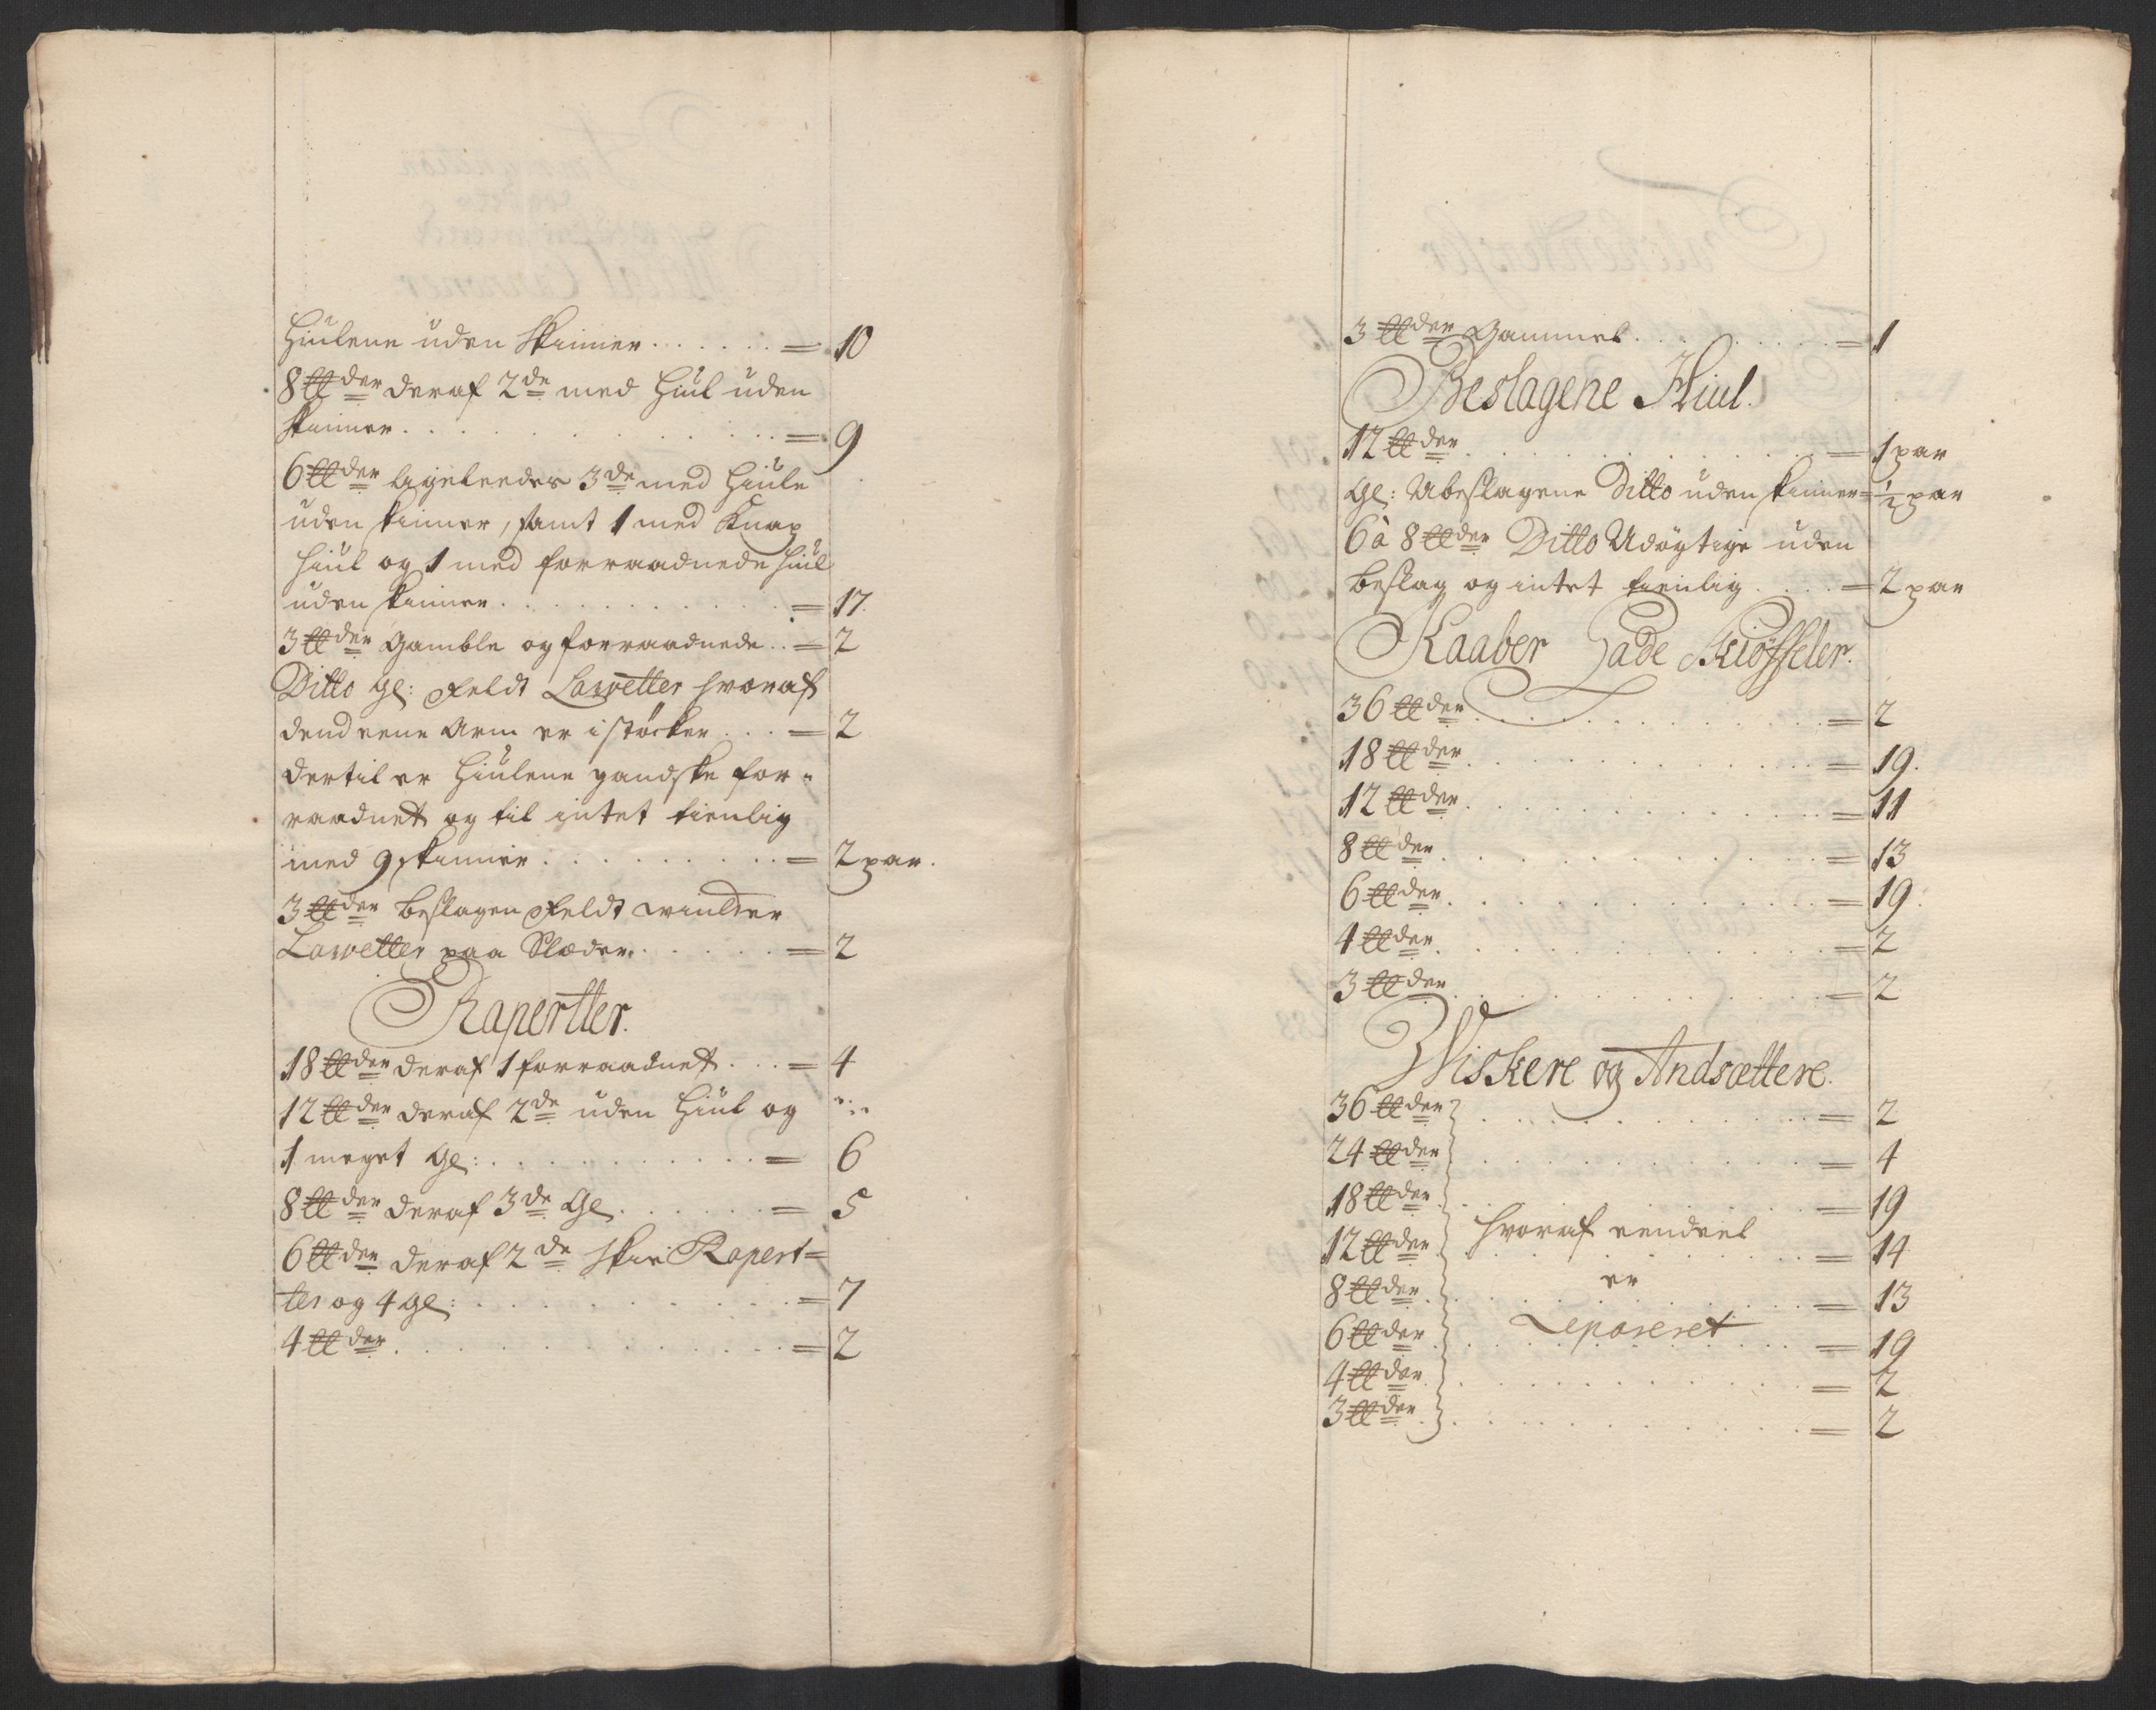 Hiulene uden Skinner . . . . . . = 10
8 ℔der deraf 2de med Hiul uden
Skinner . . . . . . . . = 9
6 ℔der ligeleedes 3de med Hiule
uden skinner, samt 1 med Knap
Hiul og 1 med forraadnede Hiul
uden skinner . . . . . . . . = 17.
3 ℔der Gamble og forraadnede . . = 2
Ditto gl: Feldt Lawetter hvoraf
dend eene Arm er i støcker . . . = 2
dertil er Hiulene gandske for-
raadnet og til intet tienlig
med 9 skinner . . . . . . . . = 2 par.
3 ℔der beslagen Feldt
Lawetter paa Slæder . . . . . = 2
Rapertter.
18 ℔der deraf 1 forraadnet . . . = 4
12 ℔der deraf 2de uden Hiul og
1 meget gl: . . . . . . . . = 6
8 ℔der deraf 3de Gl. . . . . . = 5
6 ℔der deraf 2de Skie Rapert=
ter og 4 gl: . . . . . . . . = 7
4 ℔der . . . . . . . . . . = 2
3 ℔der Gammel . . . . . . . = 1
Beslagene Hiul.
12 ℔der . . . . . . . . . = 1 par
Gl: Ubeslagene Ditto uden skinner = ½ par
6 à 8 ℔der Ditto Udøgtige uden
beslag og intet tienlig . . . . = 2 par
Kaaber Lade Skiøffeler.
36 ℔der . . . . . . . . . = 2
18 ℔der . . . . . . . . . = 19.
12 ℔der . . . . . . . . . = 11
8 ℔der . . . . . . . . . = 13
6 ℔der . . . . . . . . . = 19.
4 ℔der . . . . . . . . . = 2
3 ℔der . . . . . . . . . = 2
Wiskere og Andsættere.
36 ℔der . . . . . . . . . = 2
24 ℔der . . . . . . . . . = 4
18 ℔der . . . . . . . . . = 19
hvoraf eendeel
12 ℔der . . . . . . . . . = 14
er
8 ℔der . . . . . . . . . = 13
Repareret
6 ℔der . . . . . . . . . = 19
4 ℔der . . . . . . . . . = 2
3 ℔der . . . . . . . . . = 2